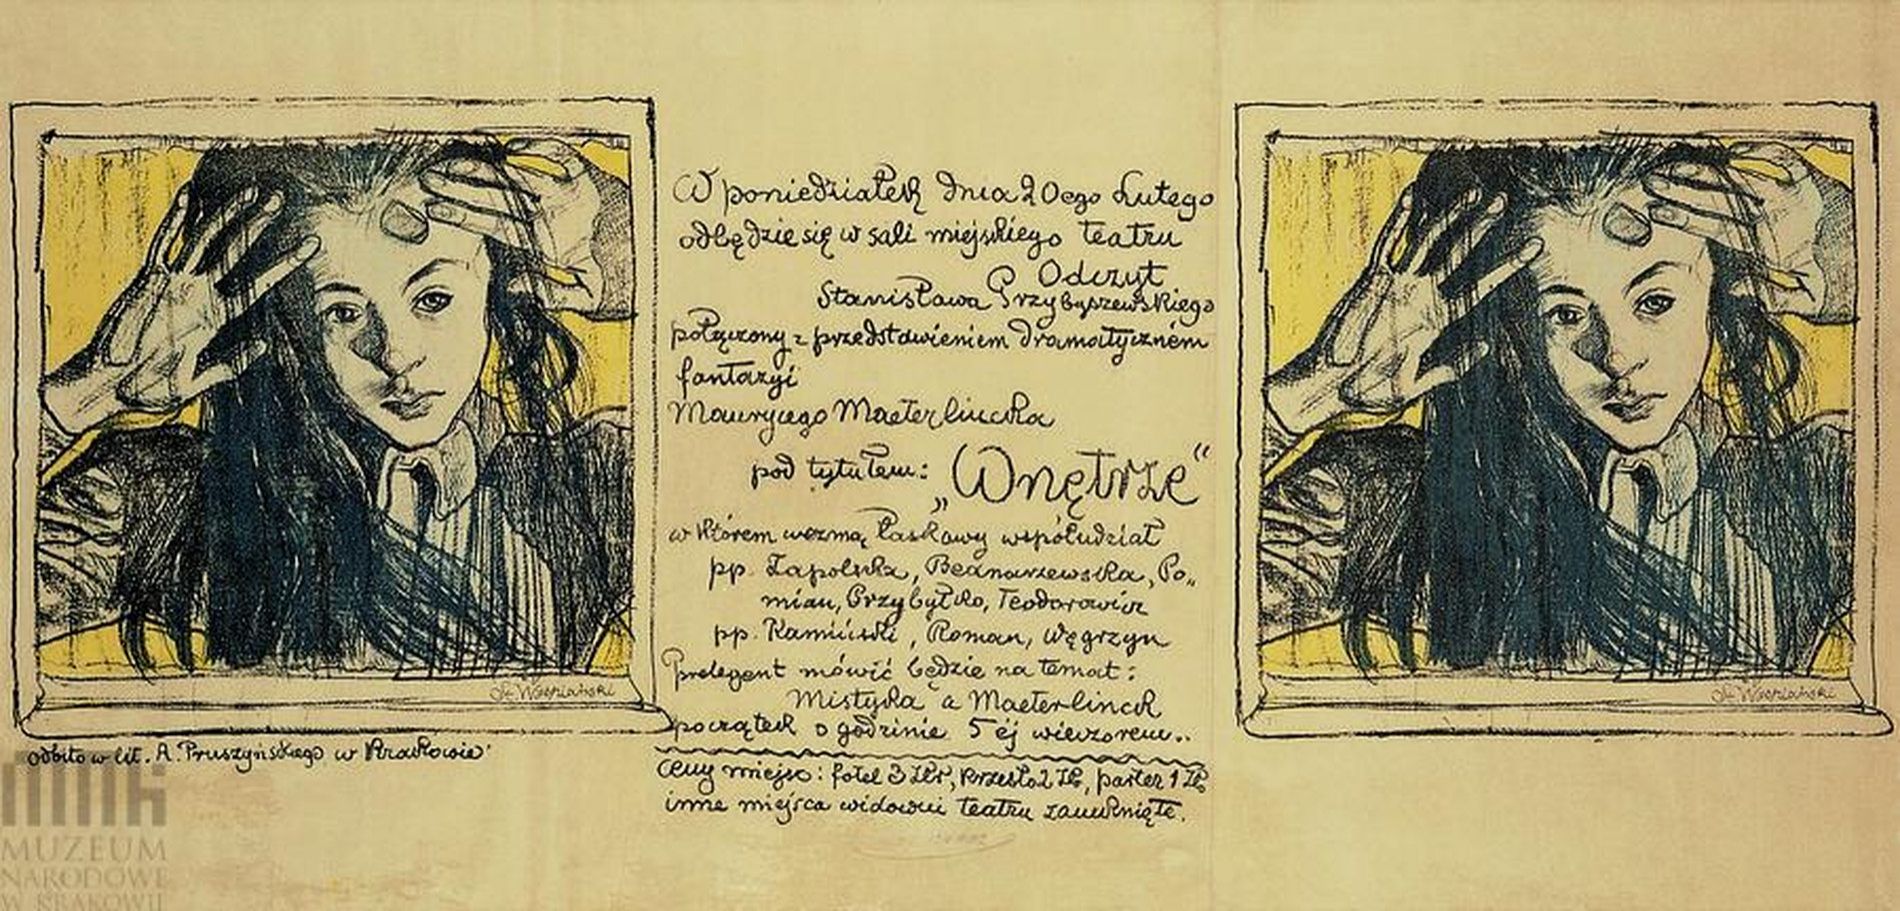 W poniedziałek dnia 20ego Lutego
odbędzie się w sali miejskiego teatru
Odczyt
Stanisława Przybyszewskiego
połączony z przedstawieniem dramatycznem
fantazyi
Maurycego Maeterlincka
pod tytułem: „Wnętrze“
w którem wezmą łaskawy współudział
pp. Zapolska, Bednarzewska, Po„
mian, Przybyłko, Teodorowicz
pp. Kamiński, Roman, Węgrzyn
Prelegent mówić będzie na temat:
Mistyka a Maeterlinck
początek o godzinie 5ej wieczorem..
Ceny miejsc: fotel 3 Złr, krzesło 2 Zł, parter 1 Zł
inne miejsca widowni teatru zamknięte.
St. Wyspiański
odbito w lit. A. Pruszyńskiego w Krakowie
St. Wyspiański
mnk
MUZEUM
NARODOWE
W KRAKOWIE